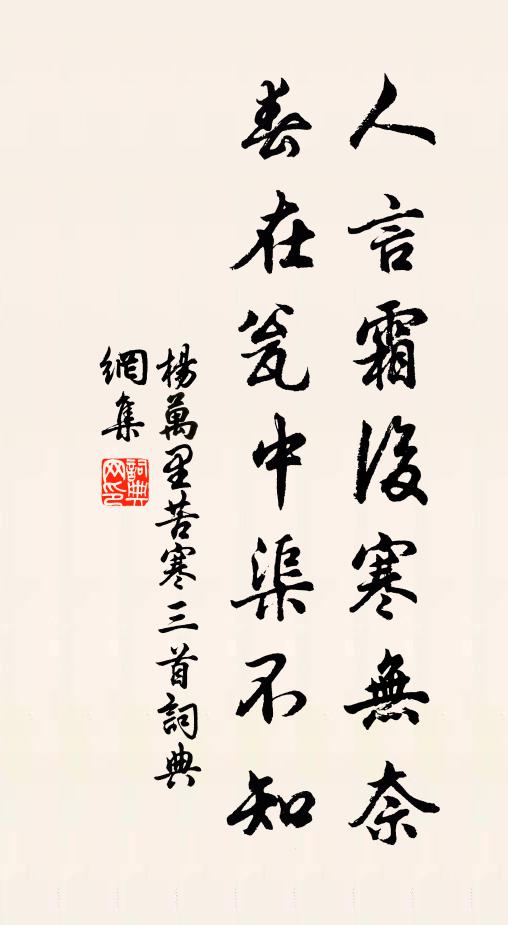 人言霜後寒無奈
春在瓮中渠不知
楊萬里苦寒三首詞典
網集
詞典
网印